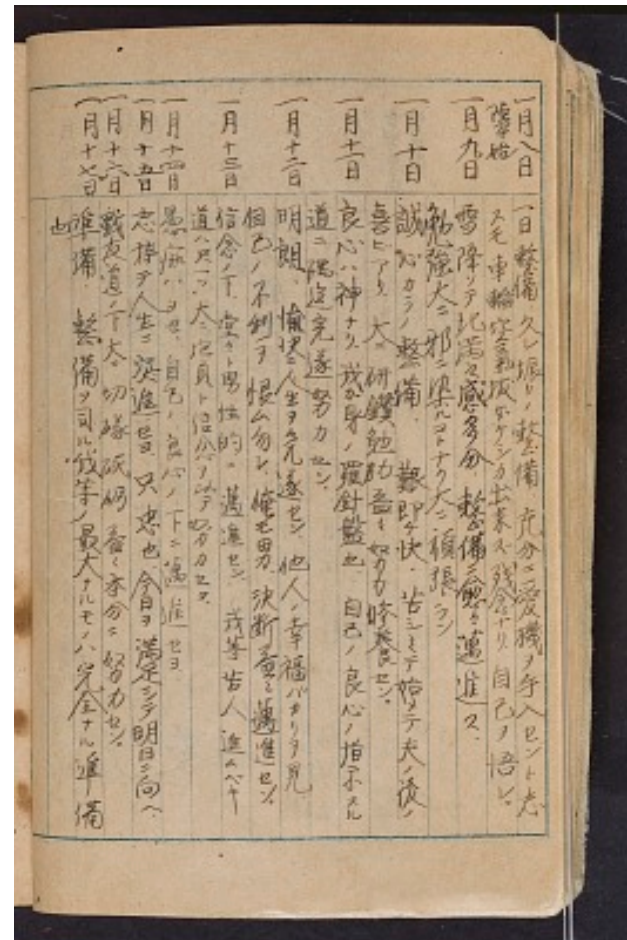 一月八日 一日整備 久シ振リノ整備 充分ニ愛機ヲ手入セント志
肇始 スモ車輪空気 出来ス残念ナリ 自己ヲ悟レ
一月九日 雪降リテ 感多分 整備ニ愈々邁進ス
勉強大ニ邪ニ染ルコトナク大ニ頑張ラン
一月十日 誠心カラノ整備 難即チ快、苦シミテ始メテ夫ノ後ノ
喜ビアリ 大ニ研鑽勉励吾ガ努力修養セン。
一月十一日 良心ハ神ナリ、我ガ身ノ羅針盤也 自己ノ良心ノ指示スル
道ニ 完遂努力セン。
一月十二日 明朗、愉快ニ人生ヲ完遂セン 他人ノ幸福バカリヲ見
自己ノ不利ヲ恨ム勿レ 俺モ男 決断 邁進セン。
一月十三日 信念ノ下、堂々ト男性的ニ邁進セン 我等若人進ムベキ
道ハ只一ツ、大ニ 信念ヲ以テ努力セヨ
一月十四日 自己ノ良心ノ下ニ邁進セヨ
一月十五日 人生ニ 只忠也 今日ヲ満足シテ明日ニ向ヘ
一月十六日 戦友道ノ下大ニ切磋琢磨 益々本分ニ努力セン。
一月十七日 準備、整備ヲ司ル我等ノ最大ナルモノハ完全ナル準備
也